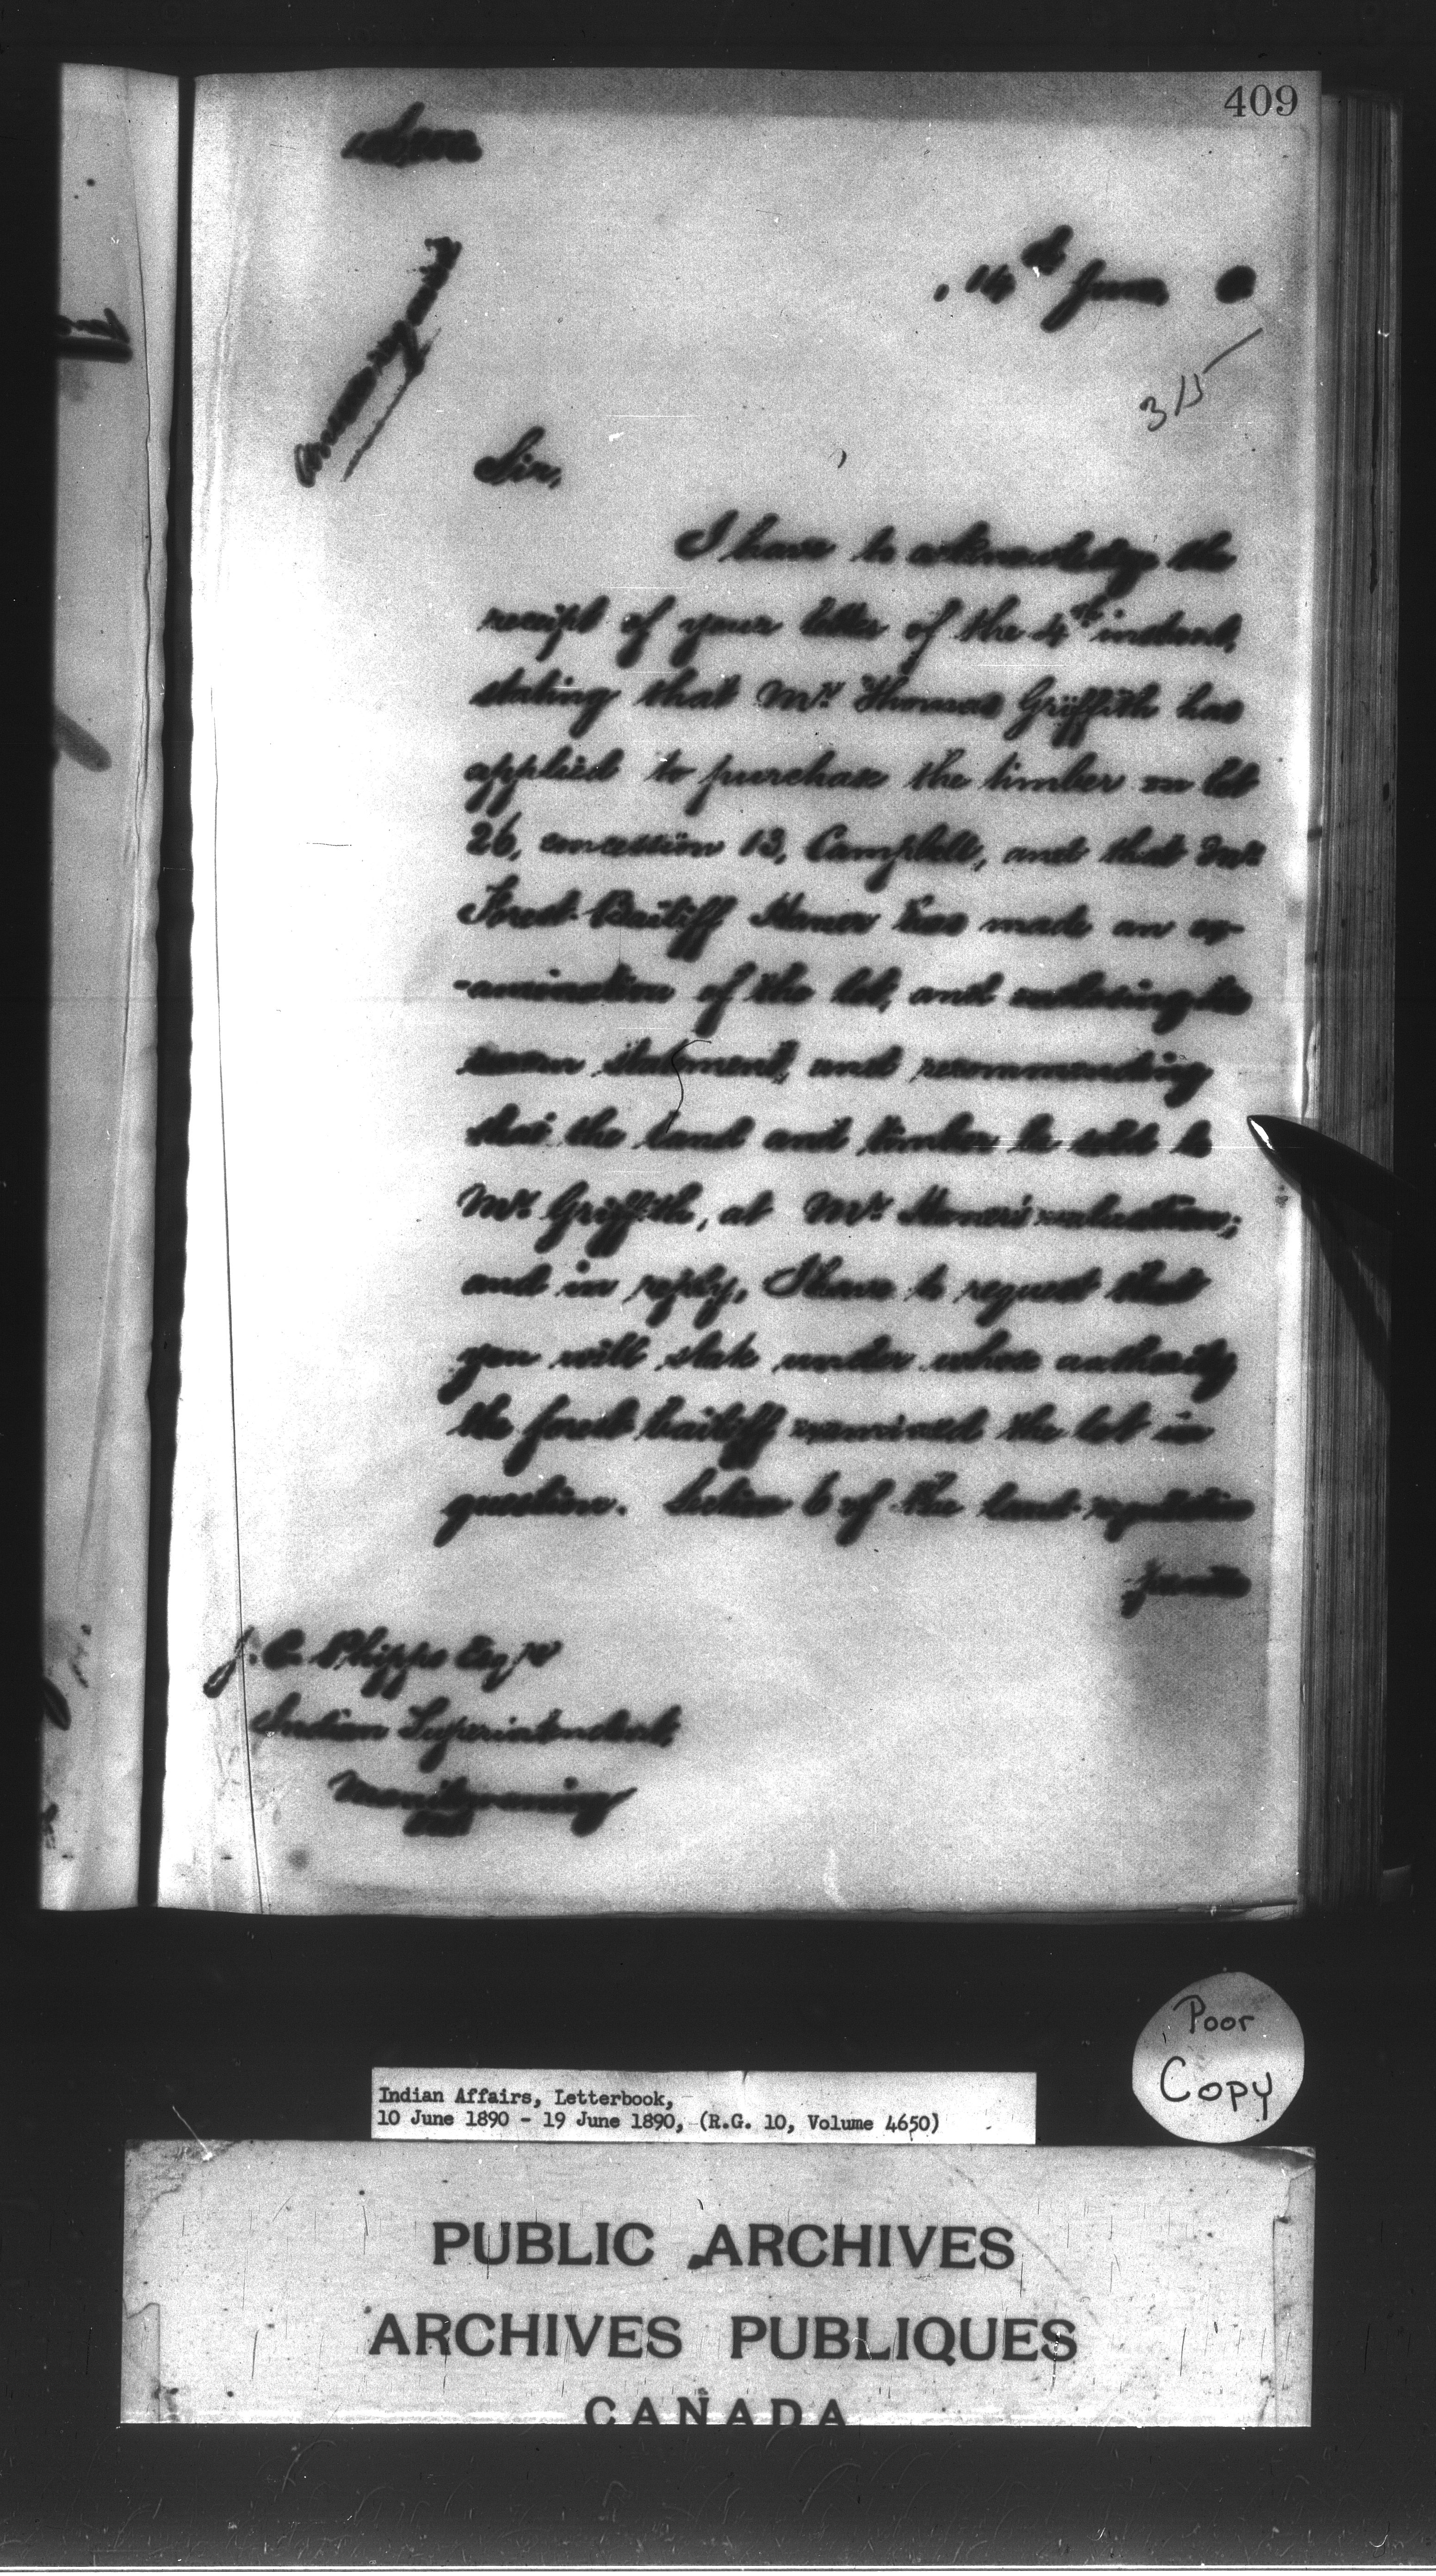 409
14th June, 0
315
Sir,
I have to acknowledge the
receipt of your letter of the 4th instant,
stating that Mr. Thomas Griffith has
applied to purchase the timber on lot
26, concession 13, Campbell, and that Mr.
Forest-Bailiff has made an ex-
-amination of the lot, and enclosing his
sworn statement, and recommending
that the land and timber be sold to
Mr. Griffith, at Mr. valuation;
and in reply, I have to request that
you will state under whose authority
the forest bailiff examined the lot in
question. Section 6 of the land regulation
J. C. Phipps Esqre
Indian Superintendent,
Manitowaning
Ont.
Poor
Copy
Indian Affairs, Letterbook,
10 June 1890 - 19 June 1890, (R.G. 10, Volume 4650)
PUBLIC ARCHIVES
ARCHIVES PUBLIQUES
CANADA